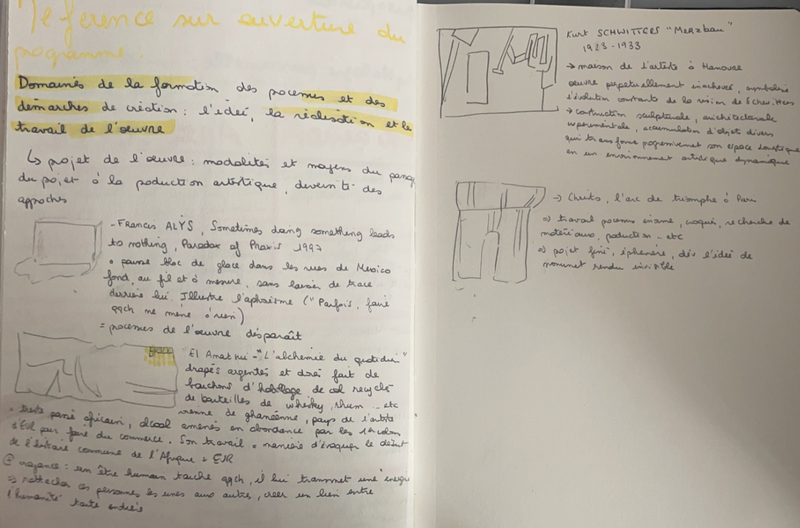 Référence sur ouverture du
programme :
Domaines de la formation des processus et des
démarches de création : l'idée, la réalisation et le
travail de l'oeuvre
↳ projet de l'oeuvre : modalités et moyens du passage
du projet à la production artistique, diversité des
approches
- Francis ALŸS, Sometimes doing something leads
to nothing, Paradox of Praxis 1997
• pousse bloc de glace dans les rues de Mexico
fond au fil et à mesure, sans laisser de trace
derrière lui. Illustre l'aphorisme ("Parfois, faire
qqch ne mène à rien)
= processus de l'oeuvre disparaît
El Anatsui - "L'alchimie du quotidien"
drapés argentés et dorés fait de
bouchons d'habillage de col recyclé
de bouteilles de whisky, rhum ... etc
de ghanéenne, pays de l'artiste
passé africain, alcool amenés en abondance par les colons
d'Eul pour faire du commerce. Son travail = manière d'évoquer le début
de l'histoire commune de l'Afrique + EUR
: un être humain touche qqch, il lui transmet une énergie
⇒ rattacher ces personnes les unes aux autres, créer un lien entre
l'humanité toute entière
Kurt SCHWITTERS "Merzbau"
1923-1933
→ maison de l'artiste à Hanovre
oeuvre perpétuellement inachevé, symbolise
l'évolution constante de la vision de Schwitters
→ construction sculpturale, architecturale
expérimentale, accumulation d'objets divers
qui transforme progressivement son espace domestique
en un environnement artistique dynamique
→ Christo, l'arc de triomphe à Paris
⇒ travail processus énorme, croquis, recherche de
matériaux, production ... etc
⇒ projet fini, éphémère, dév l'idée de
monument rendu invisible